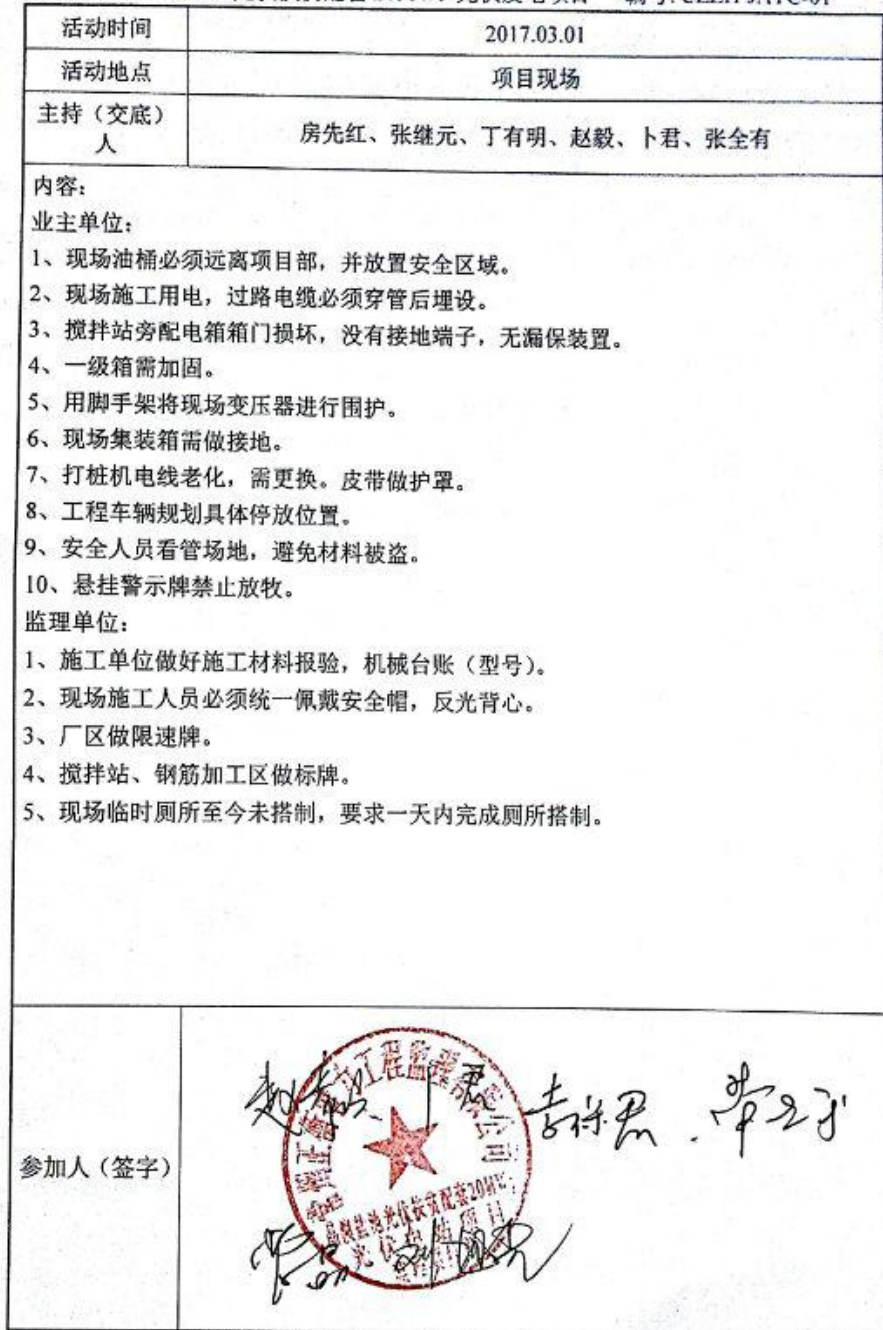 活动时间 2017.03.01
活动地点 项目现场
主持（交底）人 房先红、张继元、丁有明、赵毅、卜君、张全有
内容：
业主单位：
1、现场油桶必须远离项目部，并放置安全区域。
2、现场施工用电，过路电缆必须穿管后埋设。
3、搅拌站旁配电箱箱门损坏，没有接地端子，无漏保装置。
4、一级箱需加固。
5、用脚手架将现场变压器进行围护。
6、现场集装箱需做接地。
7、打桩机电线老化，需更换。皮带做护罩。
8、工程车辆规划具体停放位置。
9、安全人员看管场地，避免材料被盗。
10、悬挂警示牌禁止放牧。
监理单位：
1、施工单位做好施工材料报验，机械台账（型号）。
2、现场施工人员必须统一佩戴安全帽，反光背心。
3、厂区做限速牌。
4、搅拌站、钢筋加工区做标牌。
5、现场临时厕所至今未搭制，要求一天内完成厕所搭制。
参加人（签字）